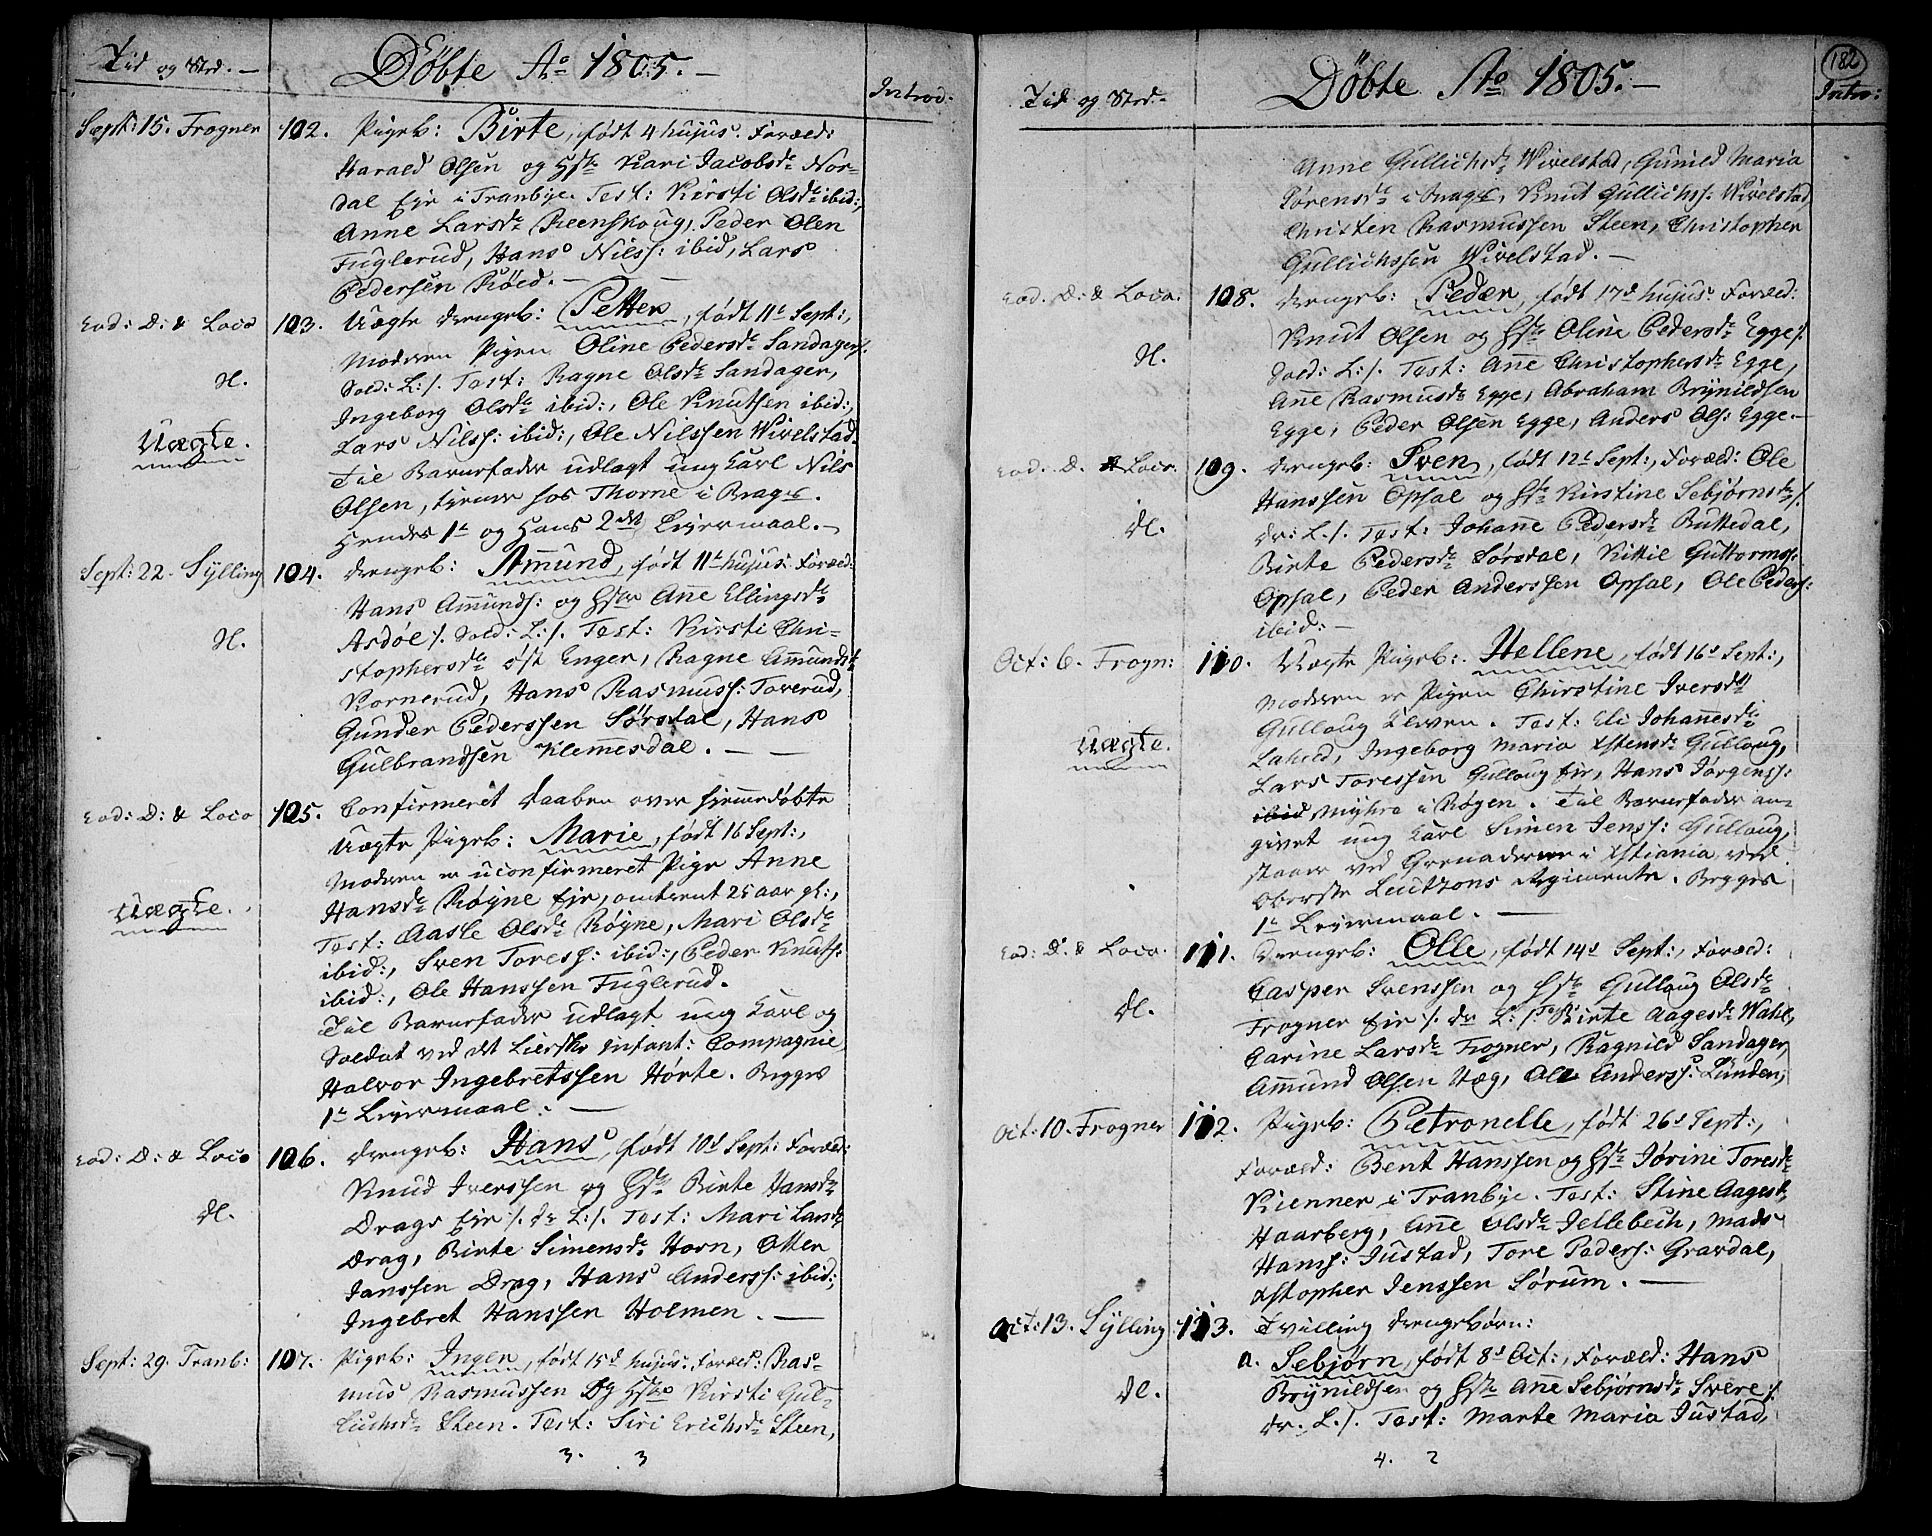 Tid og Sted. — Döbte Ao 1805. — Introd:
Sept: 15. Frogner 102. Pigeb: Birte, födt 4 hujus. Foræld:
Harald Olsen og Hstr Kari Jacobsdr Nor-
dal Eje i Tranbye. Test: Kirsti Olsdr ibid:,
Anne Larsdr Reenskoug, Peder Olen
Fuglerud, Hans Nilss: ibid, Lars
Pedersen Röed. —
Eod: D: & Loco 103. Uægte Drengeb: Petter, födt 11t Sept:,
Moderen Pigen Oline Pedersdr Sandager /.
N. Sold: L: /. Test: Ragne Olsdr Sandager,
Ingeborg Olsdr ibid:, Ole Knutsen ibid:,
Uægte. Lars Nilss: ibid:, Ole Nilssen Wivelstad.
Til Barnefader udlagt ung Karl Nils
Olsen, tjener hos Thorne i Bragns.
Hendes 1t og Hans 2det Leiermaal. —
Sept: 22. Sylling 104. Drengeb: Amund, födt 11t hujus. Foræld:
Hans Amunds: og Hstr Anne Ellingsdr
N. Asdöl /. Sold: L: /. Test: Kirsti Chri-
stophersdr öst Enger, Ragne Amundsdr
Kornerud, Hans Rasmuss: Toverud,
Gunder Pederssen Sörsdal, Hans
Gulbrandsen Klemmesdal. — —
Eod: D: & Loco 105. Confirmeret Daaben over hjemmedöbte
Uægte Pigeb: Marie, födt 16 Sept:,
Moderen er uconfirmeret Pige Anne
Uægte. Hansdr Röyne Eje, omtrent 25 aar gl:,
Test: Aasle Olsdr Röyne, Mari Olsdr
ibid:, Sven Toress: ibid:, Peder Knuts:
ibid:, Ole Hanssen Fuglerud.
Til Barnefader udlagt ung Karl og
Soldat ved det Lierske Infant: Compagnie
Halvor Ingebretssen Hörte. Begges
1t Leiermaal. —
Eod: D: & Loco 106. Drengeb: Hans, födt 10d Sept: Foræld:
Knud Iverssen og Hstr Birte Hansdr
Dl. Drags Eje /. Dr L: /. Test: Mari Larsdr
Drag, Birte Simensdr Horn, Otter
Janssen Drag, Hans Anderss: ibid:,
Ingebret Hanssen Holmen. —
Sept: 29. Tranb: 107. Pigeb: Inger, födt 15d hujus. Foræld: Ras-
mus Rasmussen og Hstr Kirsti Gul-
lichsdr Steen. Test: Siri Erichsdr Steen,
3. 3
182
Tid og Sted. Döbte Ao 1805. — Intro:
Anne Gullichsdr Wivelstad, Gunild Maria
Sörensdr i Bragns, Knut Gullichs: Wivelstad,
Christen Rasmussen Steen, Christopher
Gullichssen Wivelstad. —
Eod. D: & Loco. 108. Drengeb: Peder, födt 17d hujus. Foræld:
Knut Olsen og Hstr Oline Pedersdr Egge /.
N. Sold: L: /. Test: Anne Christophersdr Egge,
Anne Rasmusdr Egge, Abraham Brynildsen
Egge, Peder Olsen Egge, Anders Ols: Egge. —
Eod. D. & Loco. 109. Drengeb: Sven, födt 12t Sept:, Foræld: Ole
Hanssen Opsal og Hstr Kirstine Sebjörnsdr /.
Dl. Dr: L. /. Test: Johanne Pedersdr Buttedal,
Birte Pedersdr Sörsdal, Kittil Guttorms:
Opsal, Peder Anderssen Opsal, Ole Peders:
ibid: —
Oct: 6. Frogn: 110. Uægte Pigeb: Hellene, födt 16d Sept:,
Moderen er Pigen Christine Iversdr
Gulloug Elven. Test: Eli Johannesdr
Uægte. Lahed, Ingeborg Maria Xstensdr Gulloug,
Lars Toressen Gulloug Eje, Hans Jörgens:
ibid Myhra i Rögen. Til Barnefader an-
givet ung Karl Simen Jenss: Gulloug,
staaer ved Grenaderene i Xstiania ved
Oberste Leutzons Regimente. Begges
1t Leiermaal. —
Eod: D: & Loco. 111. Drengeb: Olle, födt 14d Sept:, Foræld:
Casper Svenssen og Hstr Gulloug Olsdr
Dl. Frogner Eje /. Dr L: /. Test: Birte Aagesdr Wahl,
Carine Larsdr Frogner, Ragnild Sandager,
Amund Olsen Hæg, Ole Anderss: Lunden,
Oct: 10. Frogner 112. Pigeb: Petronelle, födt 26d Sept:,
Foræld: Bent Hanssen og Hstr Jörine Toresdr
Kienner i Tranbye. Test: Stine Aagesdr
Haarberg, Anne Olsdr Jellebech, Mads
Hanss: Justad, Tore Peders: Gravdal,
Xstopher Jenssen Sörum. —
Oct: 13. Sylling 113. Tvilling Drengebörn:
a. Sebjörn, födt 8d Oct:, Foræld: Hans
Brynildsen og Hstr Anne Sebjörnsdr Svere /.
Dl. Dr. L. /. Test: Marte Maria Justad,
4. 2